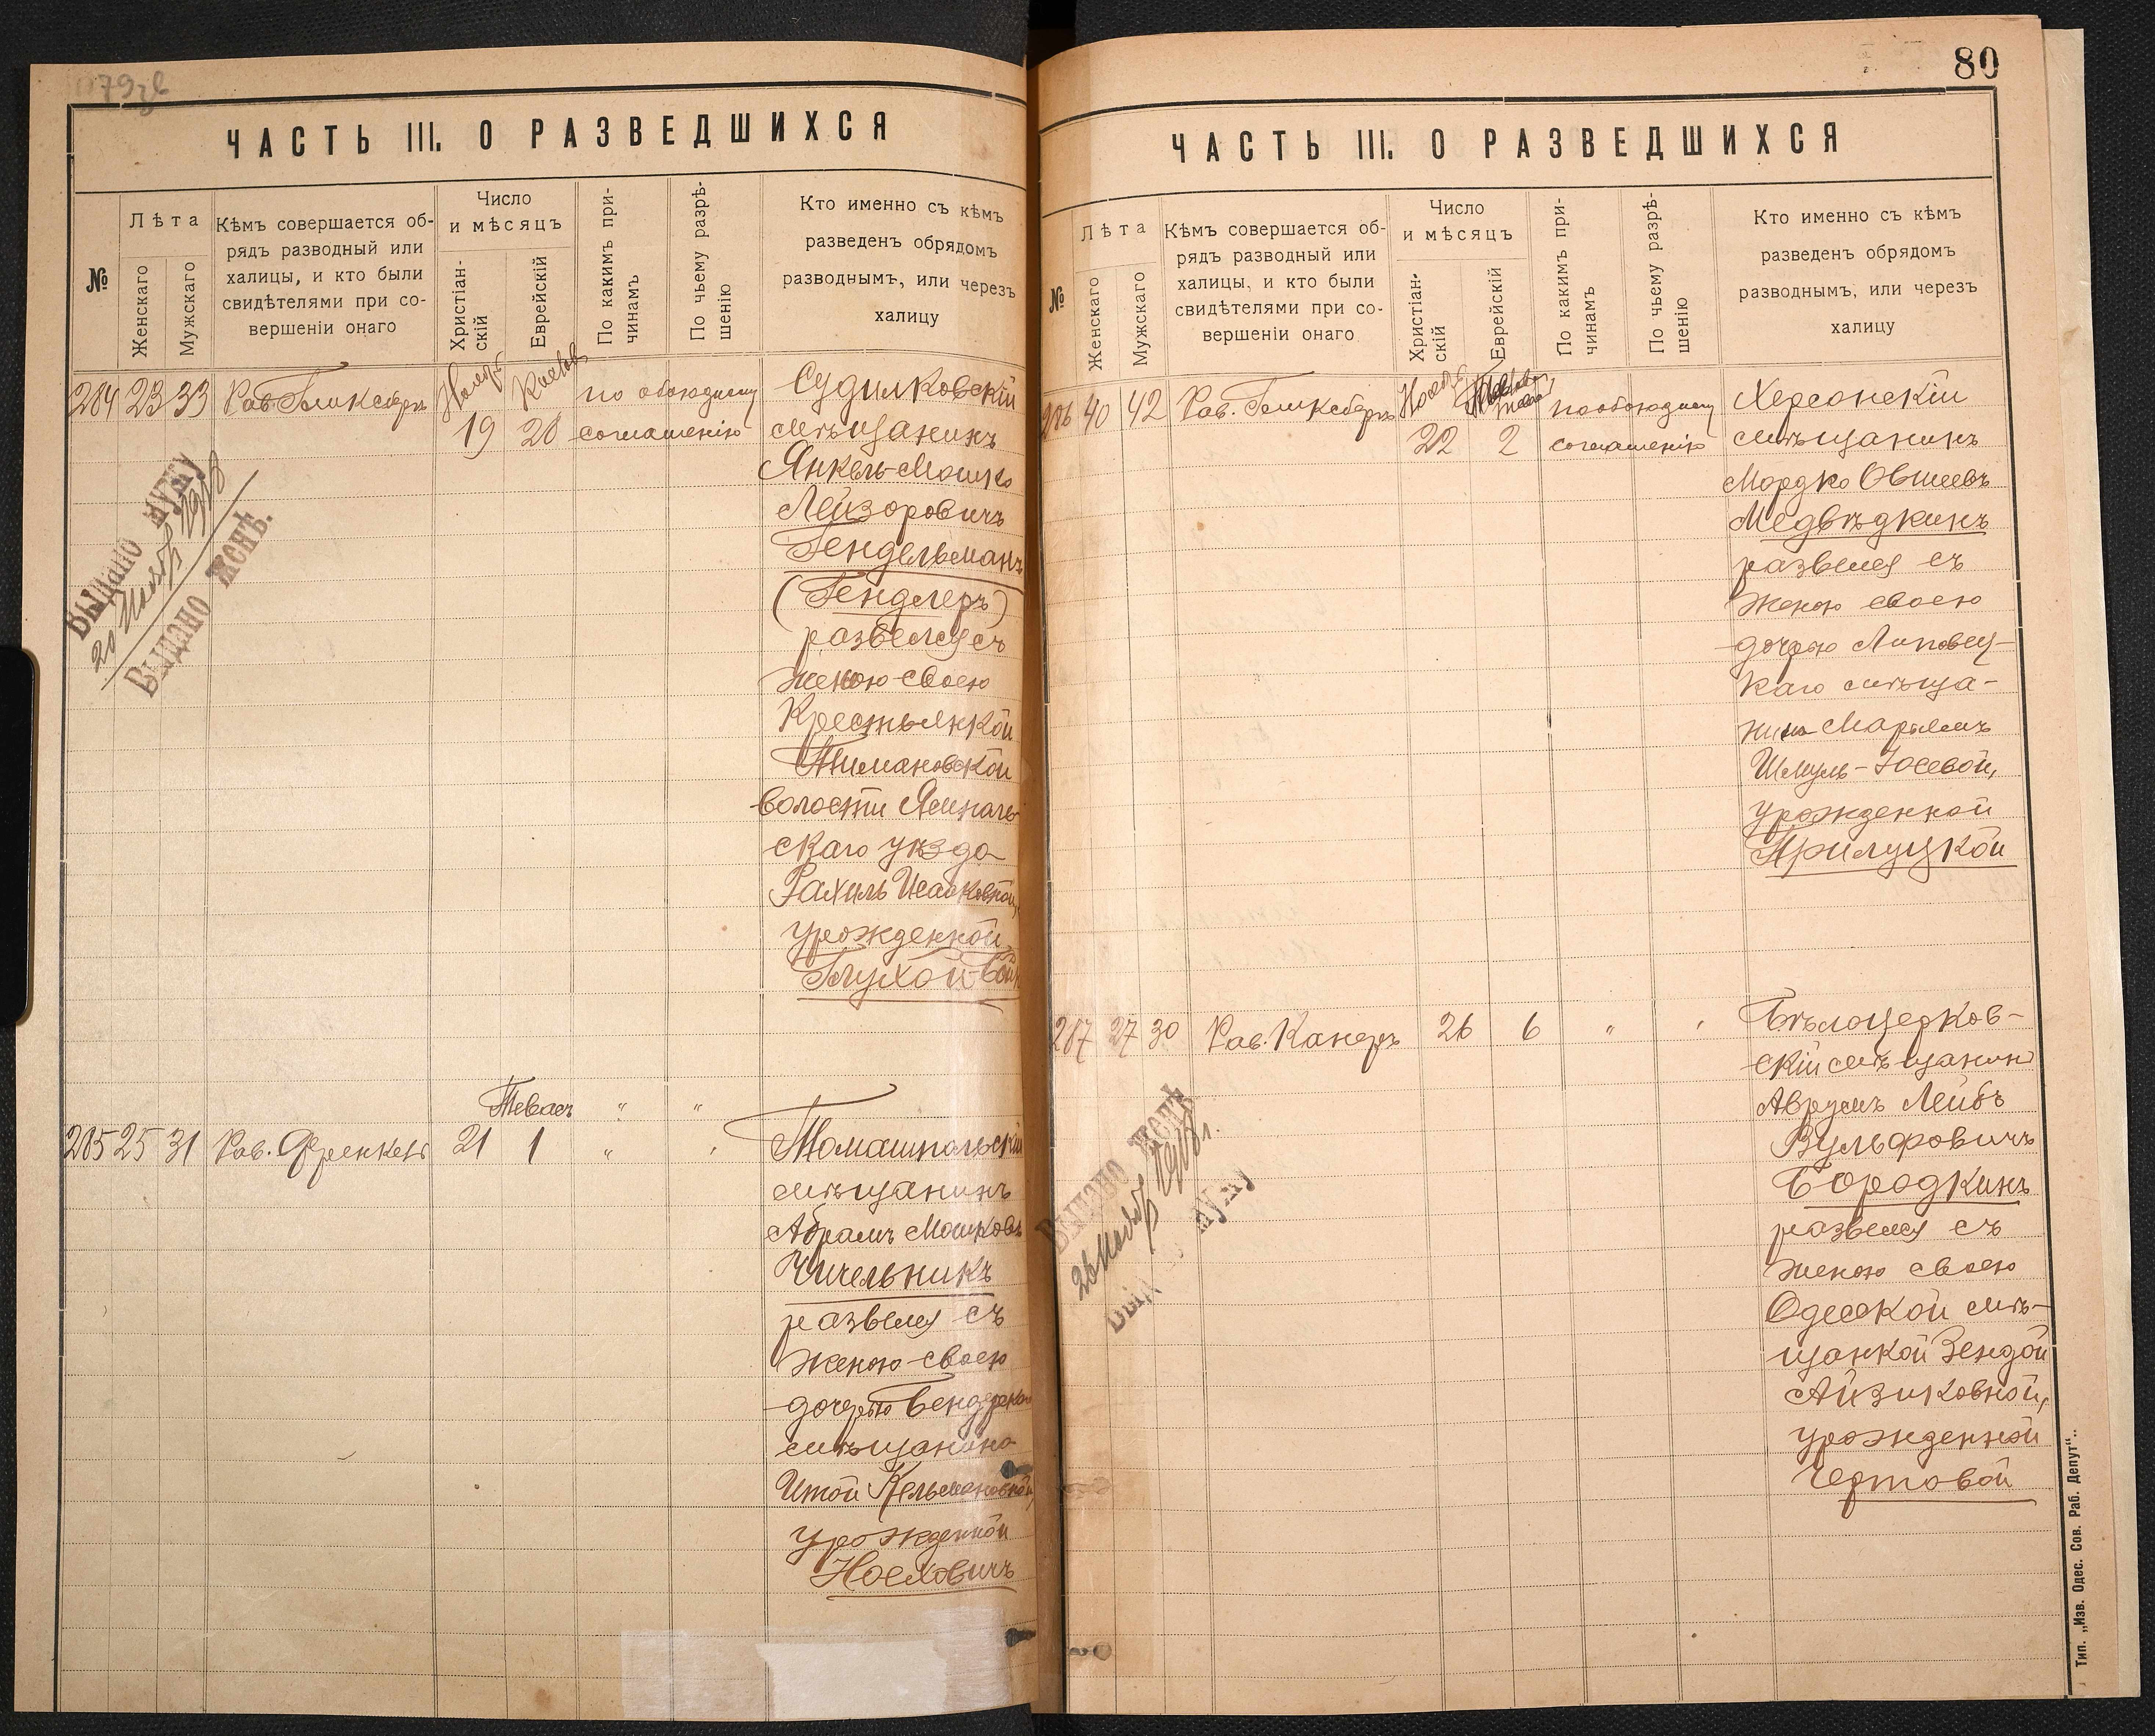 79зв
ЧАСТЬ III. О РАЗВЕДШИХСЯ
№
Лѣта
Женскаго
Мужскаго
Кѣмъ совершается об-
рядъ разводный или
халицы, и кто были
свидѣтелями при со-
вершеніи онаго
Число
и мѣсяцъ
Христіан-
скій
Еврейскій
По какимъ при-
чинамъ
По чьему разрѣ-
шенію
Кто именно съ кѣмъ
разведенъ обрядомъ
разводнымъ, или черезъ
халицу
284 23 33
Ноябр
19
20
по обоюдному
соглашенію
Судилковскій
мѣщанинъ
Янкель-Мошко
Лейзоровичъ
Гендельманъ
(Гендлеръ)
развелся съ
женою своею
Крестьянкой
Тимановской
волости Ямполь-
скаго уѣзда
Рахиль Исааковной,
урожденной
Глухой
Выдано мужу
20 Ноябр 1918
Выдано женѣ.
Тевесъ " "
285 25 31 Рав. Френкель 21 1 " "
Томашпольскій
мѣщанинъ
Абрамъ Мошковъ
Чичельникъ
развелся съ
женою своею
дочерью Бендерскаго
мѣщанина
Итой Кельмановной,
урожденной
Носховичъ
80
ЧАСТЬ III. О РАЗВЕДШИХСЯ
№
Лѣта
Женскаго
Мужскаго
Кѣмъ совершается об-
рядъ разводный или
халицы, и кто были
свидѣтелями при со-
вершеніи онаго
Число
и мѣсяцъ
Христіан-
скій
Еврейскій
По какимъ при-
чинамъ
По чьему разрѣ-
шенію
Кто именно съ кѣмъ
разведенъ обрядомъ
разводнымъ, или черезъ
халицу
286 40 42
Ноябр
22
2
по обоюдному
соглашенію
Херсонскій
мѣщанинъ
Мордко Овшеевъ
Медвѣдкинъ
развелся съ
женою своею
дочерью Липовец-
каго мѣща-
нина Марьемъ
Шмуль-Іосевой,
урожденной
Прилуцкой
287 27 30 Рав. Канеръ 26 6 " "
Бѣлоцерков-
скій мѣщанинъ
Аврумъ Лейбъ
Вульфовичъ
Бородкинъ
развелся съ
женою своею
Одесской мѣ-
щанкой Зендой
Айзиковной,
урожденной
Чертовой
Выдано женѣ
26 Ноябр 1918 г.
мужу
Тип. „Изв. Одес. Сов. Раб. Депут"..